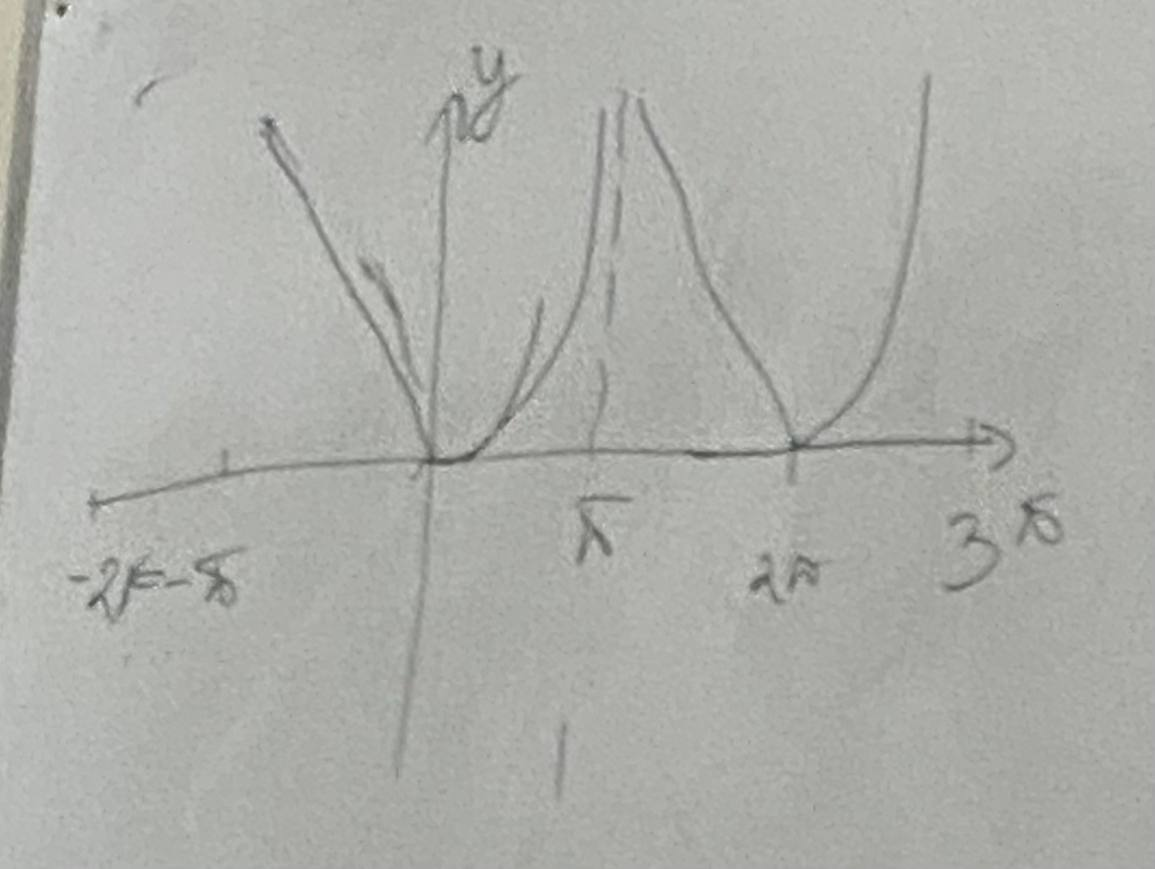 y
-2π -π π 2π 3π